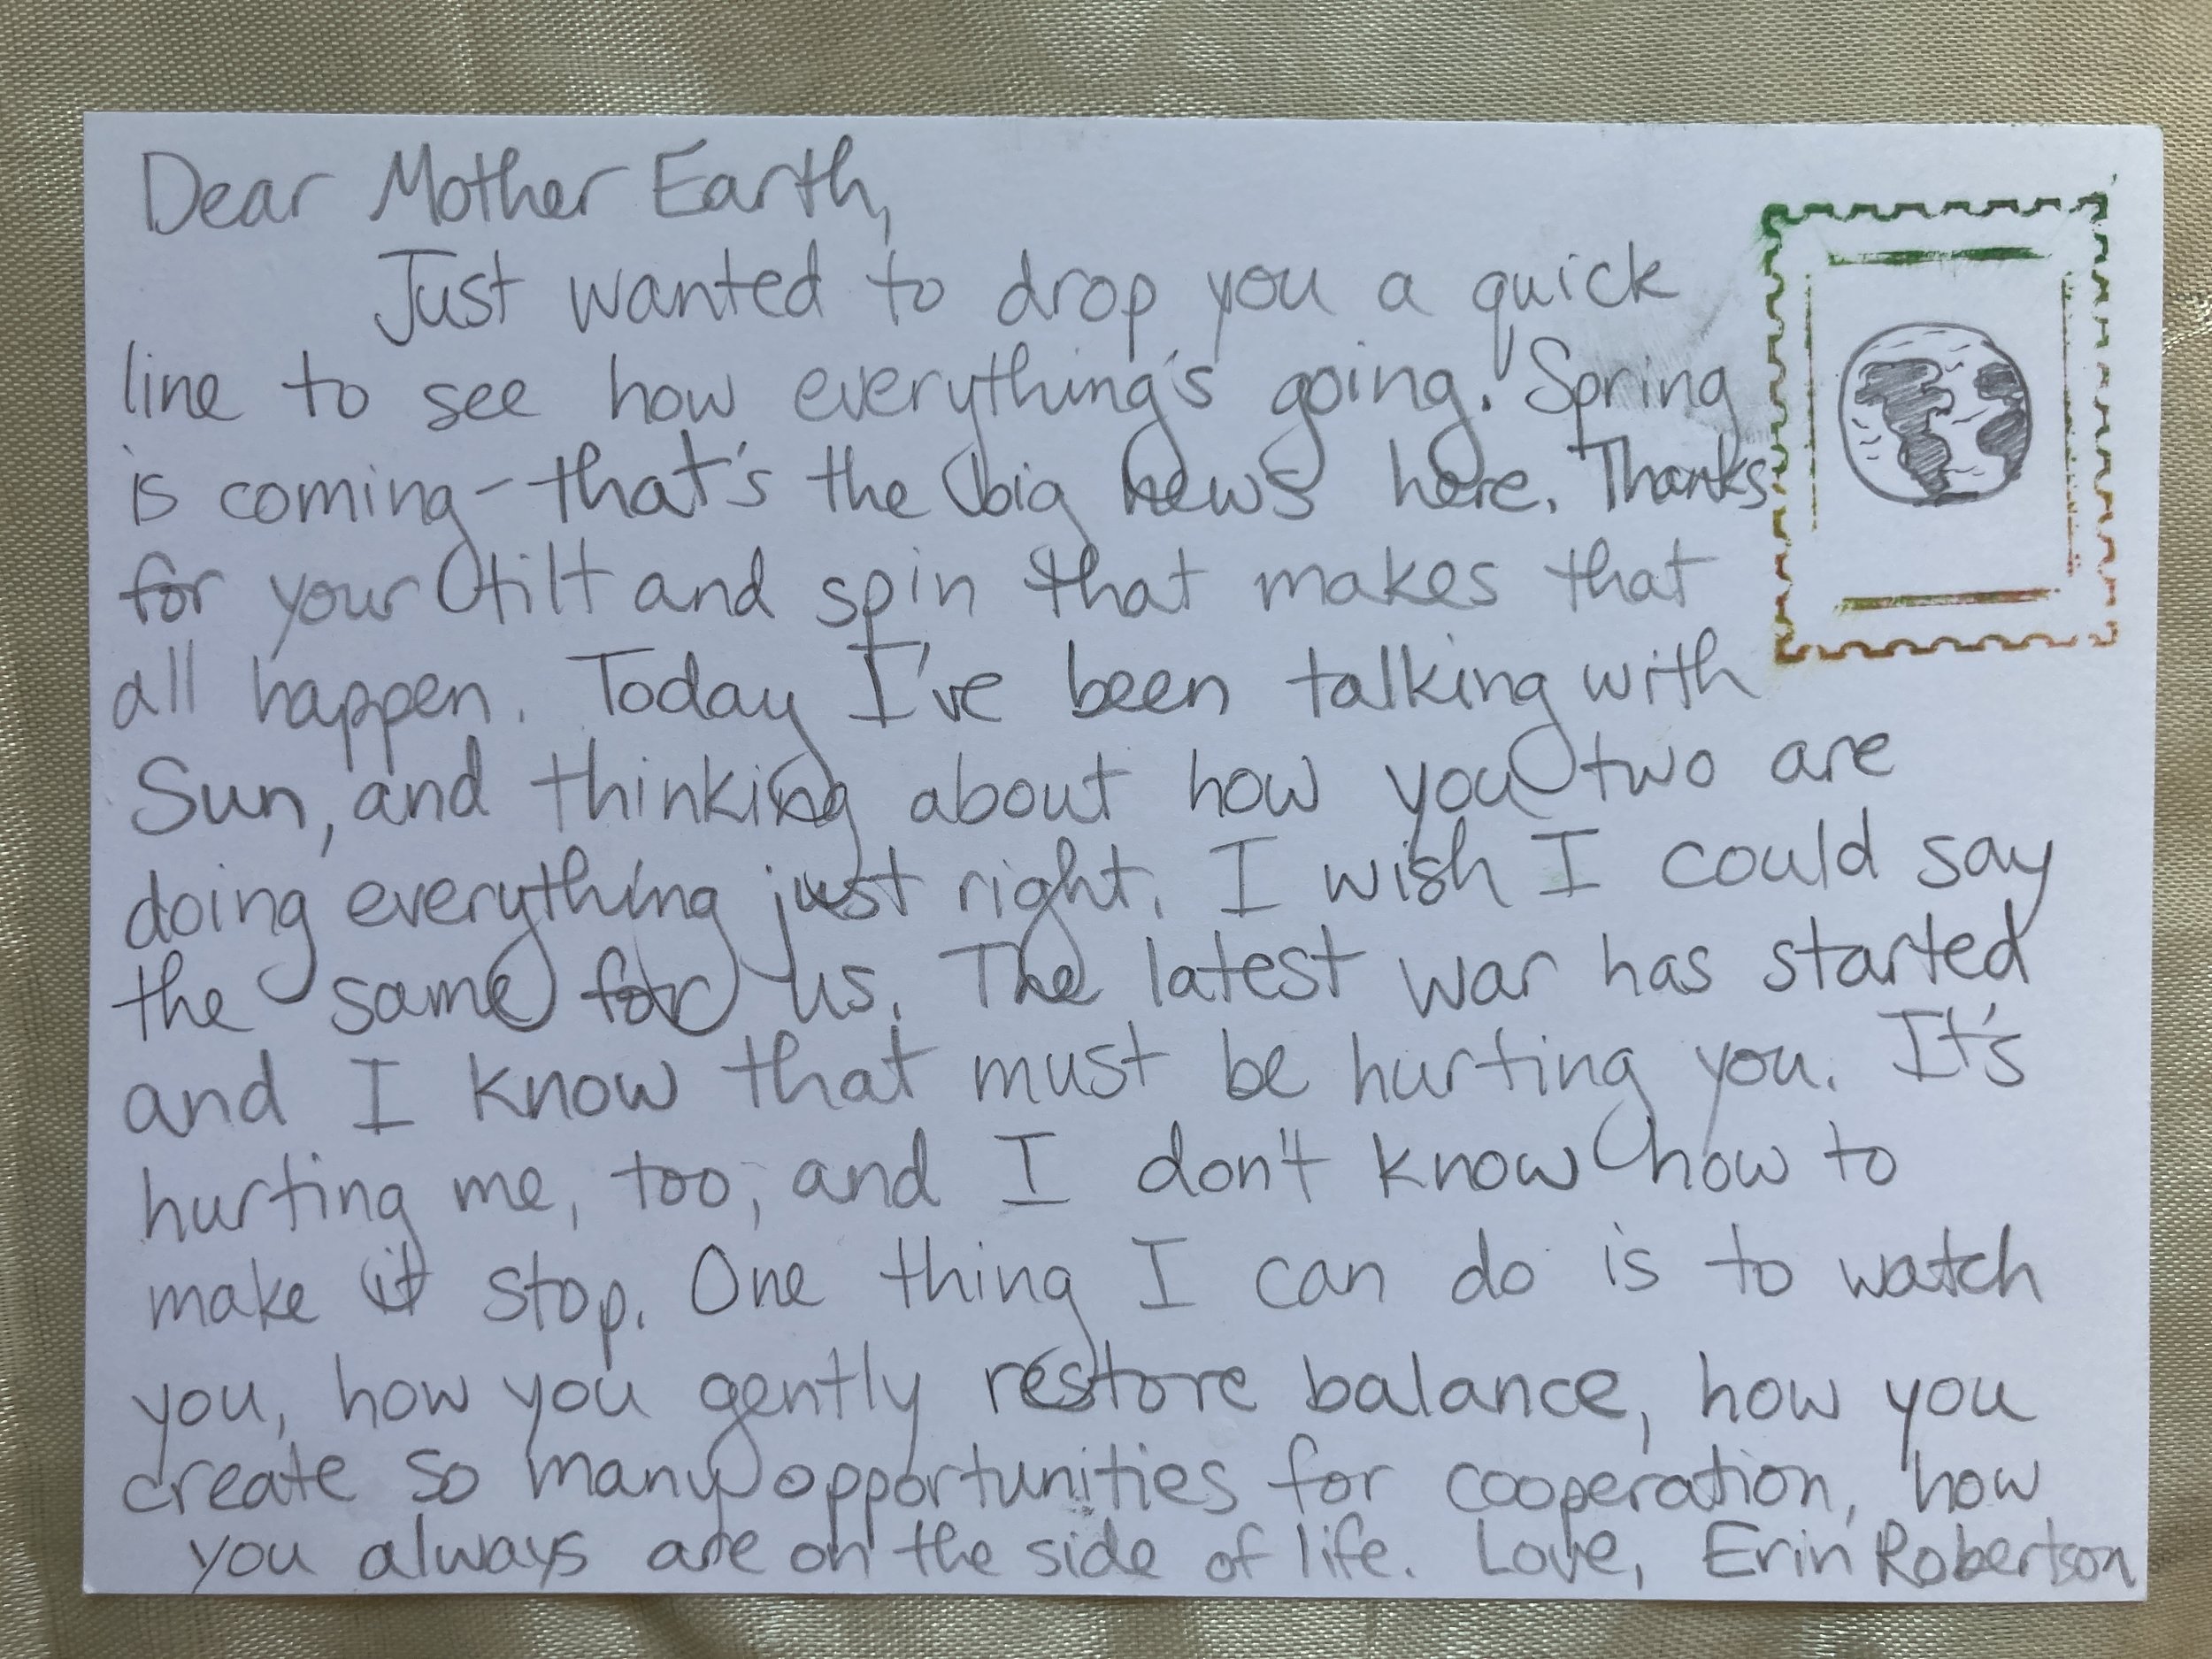 Dear Mother Earth,
Just wanted to drop you a quick
line to see how everything's going. Spring
is coming - that's the big news here. Thanks
for your tilt and spin that makes that
all happen. Today I've been talking with
Sun, and thinking about how you two are
doing everything just right. I wish I could say
the same for us. The latest war has started
and I know that must be hurting you. It's
hurting me, too, and I don't know how to
make it stop. One thing I can do is to watch
you, how you gently restore balance, how you
create so many opportunities for cooperation, how
you always are on the side of life. Love, Erin Robertson